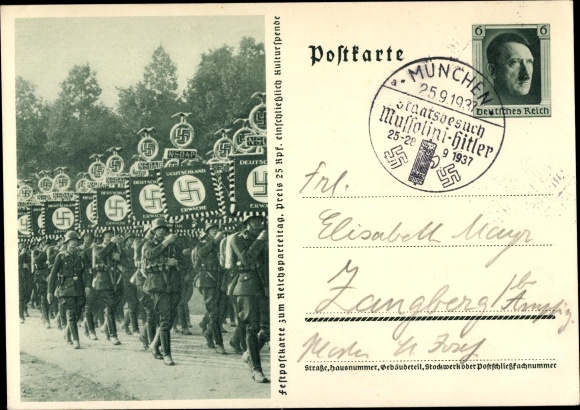 DEUTSCHLAND
ERWACHE
Festpostkarte zum Reichsparteitag. Preis 25 Rpf. einschließlich Kulturspende
Postkarte
6 6
Deutsches Reich
MÜNCHEN
25.9.1937
Staatsbesuch
Mussolini-Hitler
9 1937
Frl.
Elisabeth Mayr
Zangberg
Straße, Hausnummer, Gebäudeteil, Stockwerk oder Postschließfachnummer